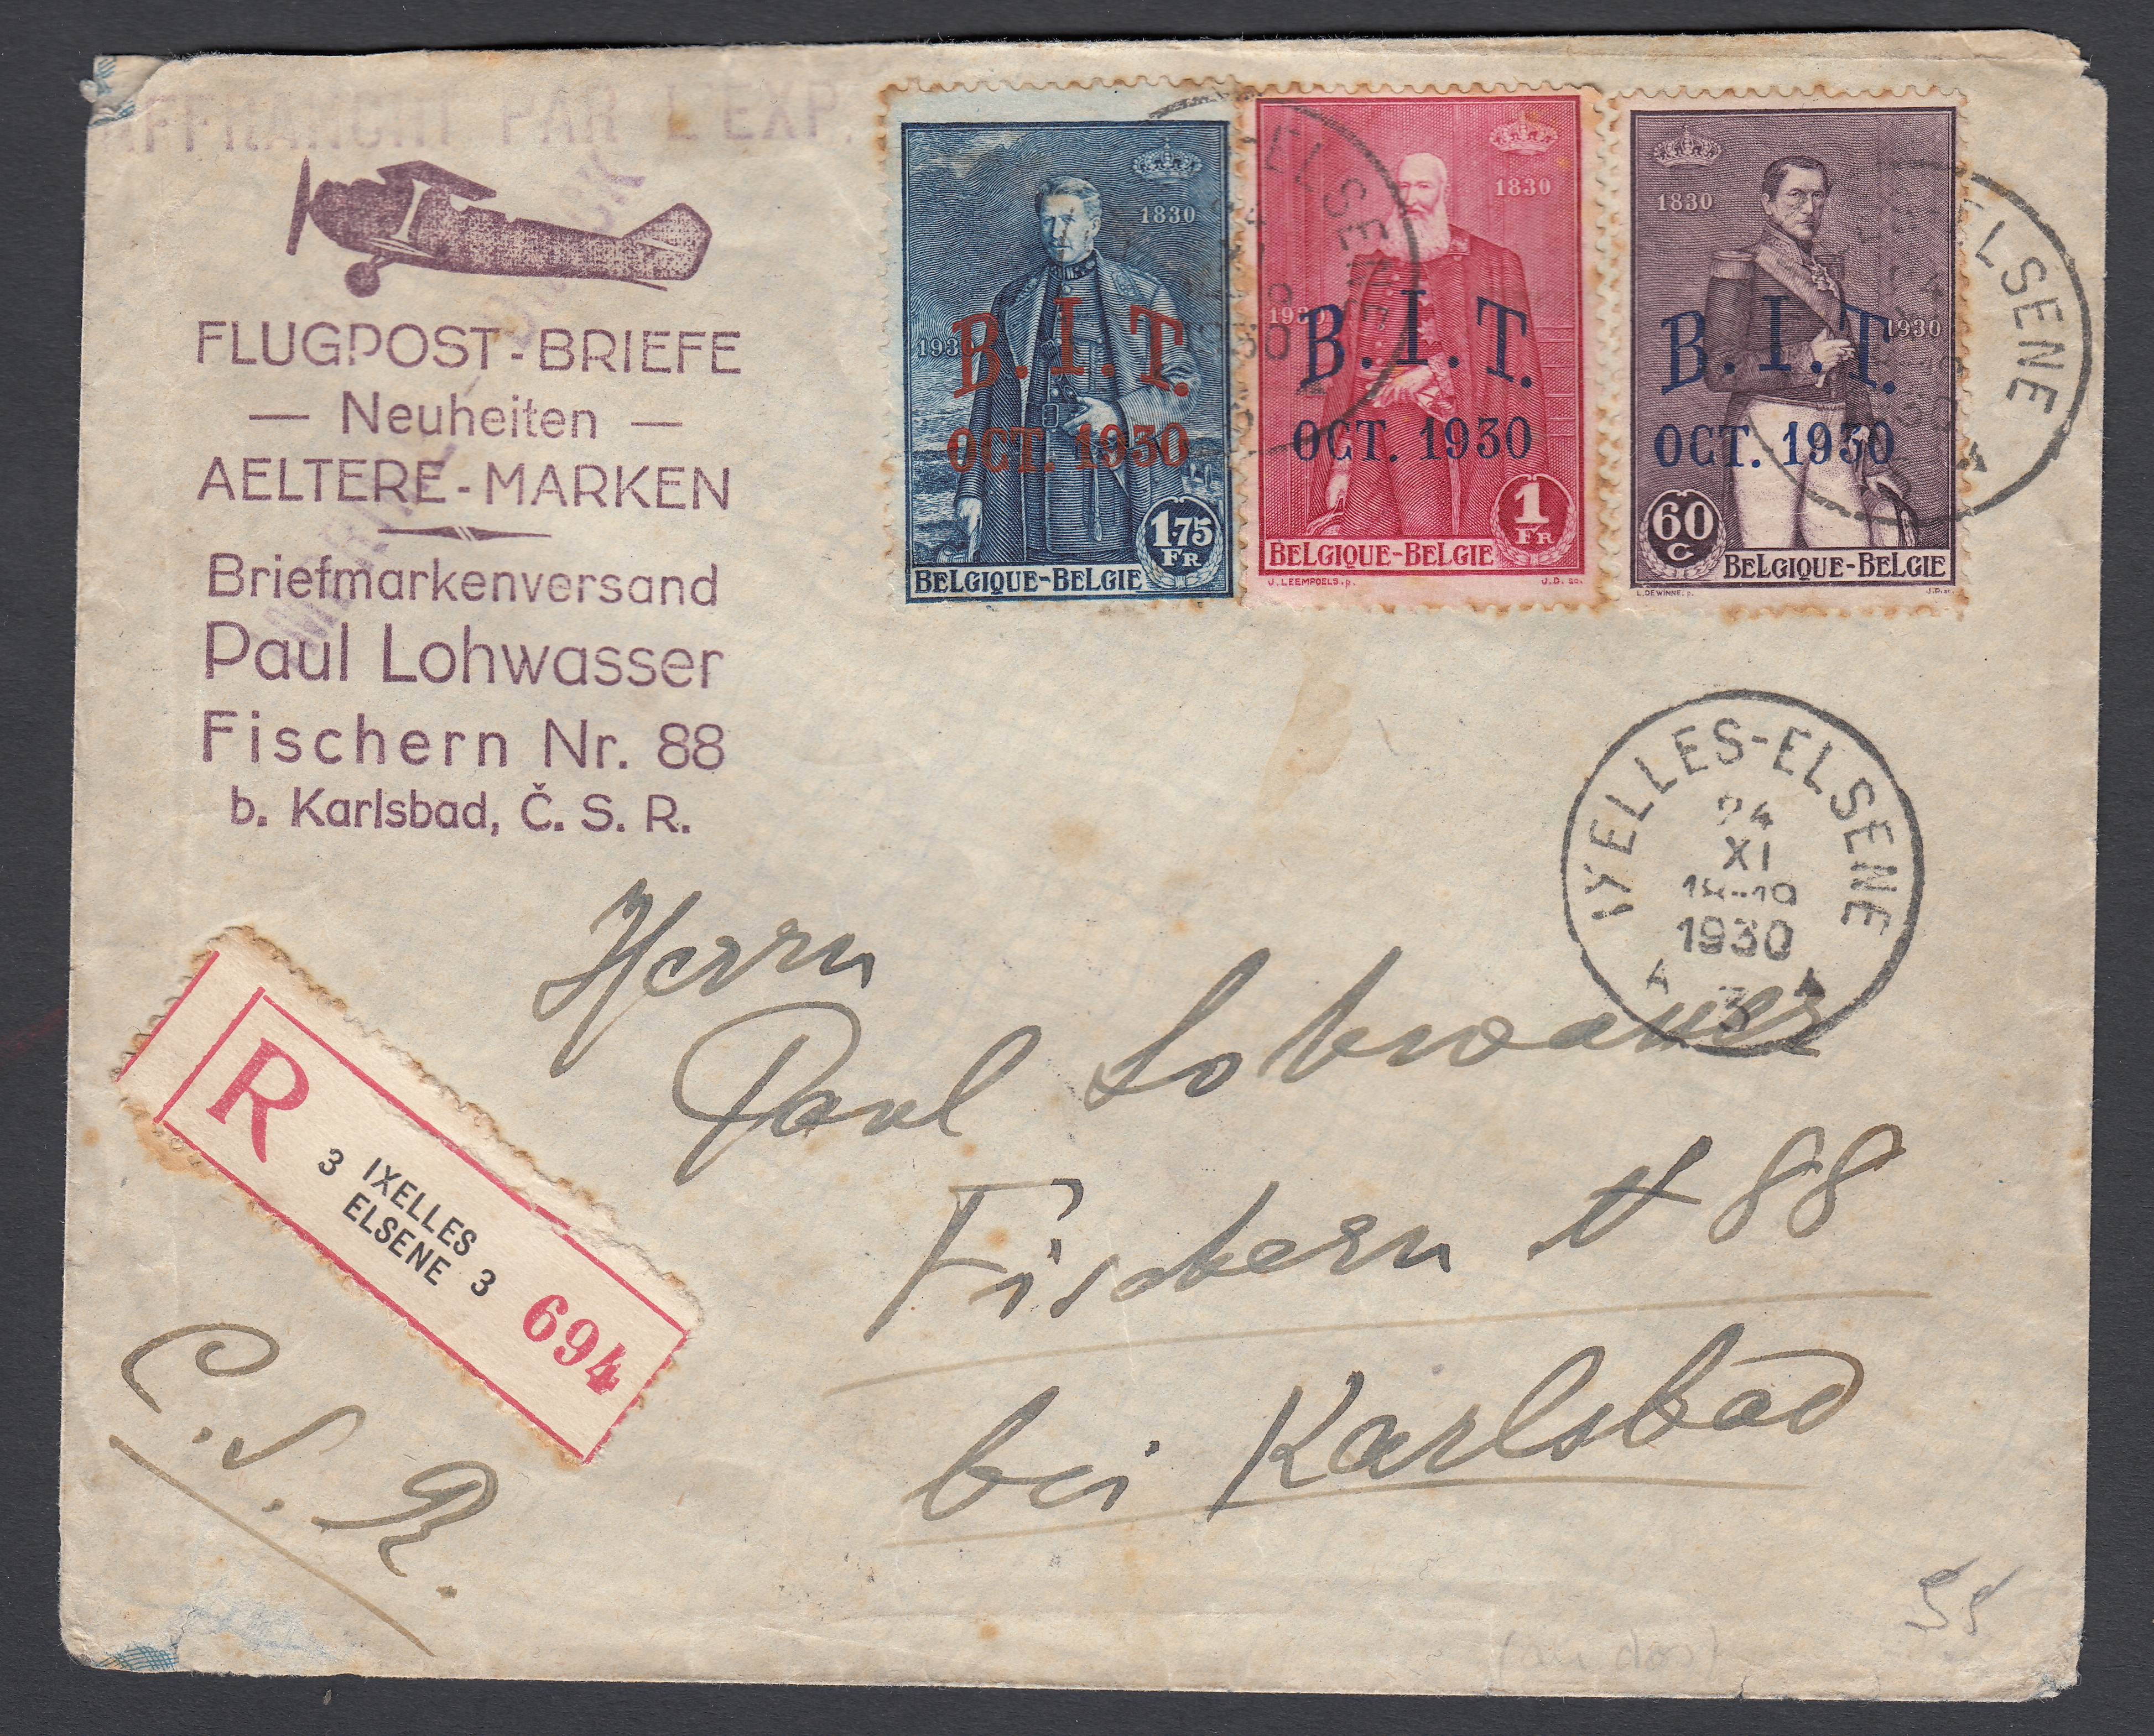 AFFRANCHI PAR L'EXP.
FLUGPOST-BRIEFE
— Neuheiten —
AELTERE-MARKEN
Briefmarkenversand
Paul Lohwasser
Fischern Nr. 88
b. Karlsbad, Č. S. R.
1830
1930
B.I.T.
OCT. 1930
1.75
FR
BELGIQUE-BELGIE
1830
B.I.T.
OCT. 1930
1
FR
BELGIQUE-BELGIE
J.LEEMPOELS.p.
J.D. sc.
1830
1930
B.I.T.
OCT. 1930
60
C
BELGIQUE-BELGIE
L.DEWINNE.p.
J.D.sc.
ELSENE
ELSENE
IXELLES-ELSENE
24
XI
18-19
1930
A 3 A
Herrn
Paul Lohwasser
Fischern N 88
bei Karlsbad
R
3 IXELLES
ELSENE 3
694
C.S.R.